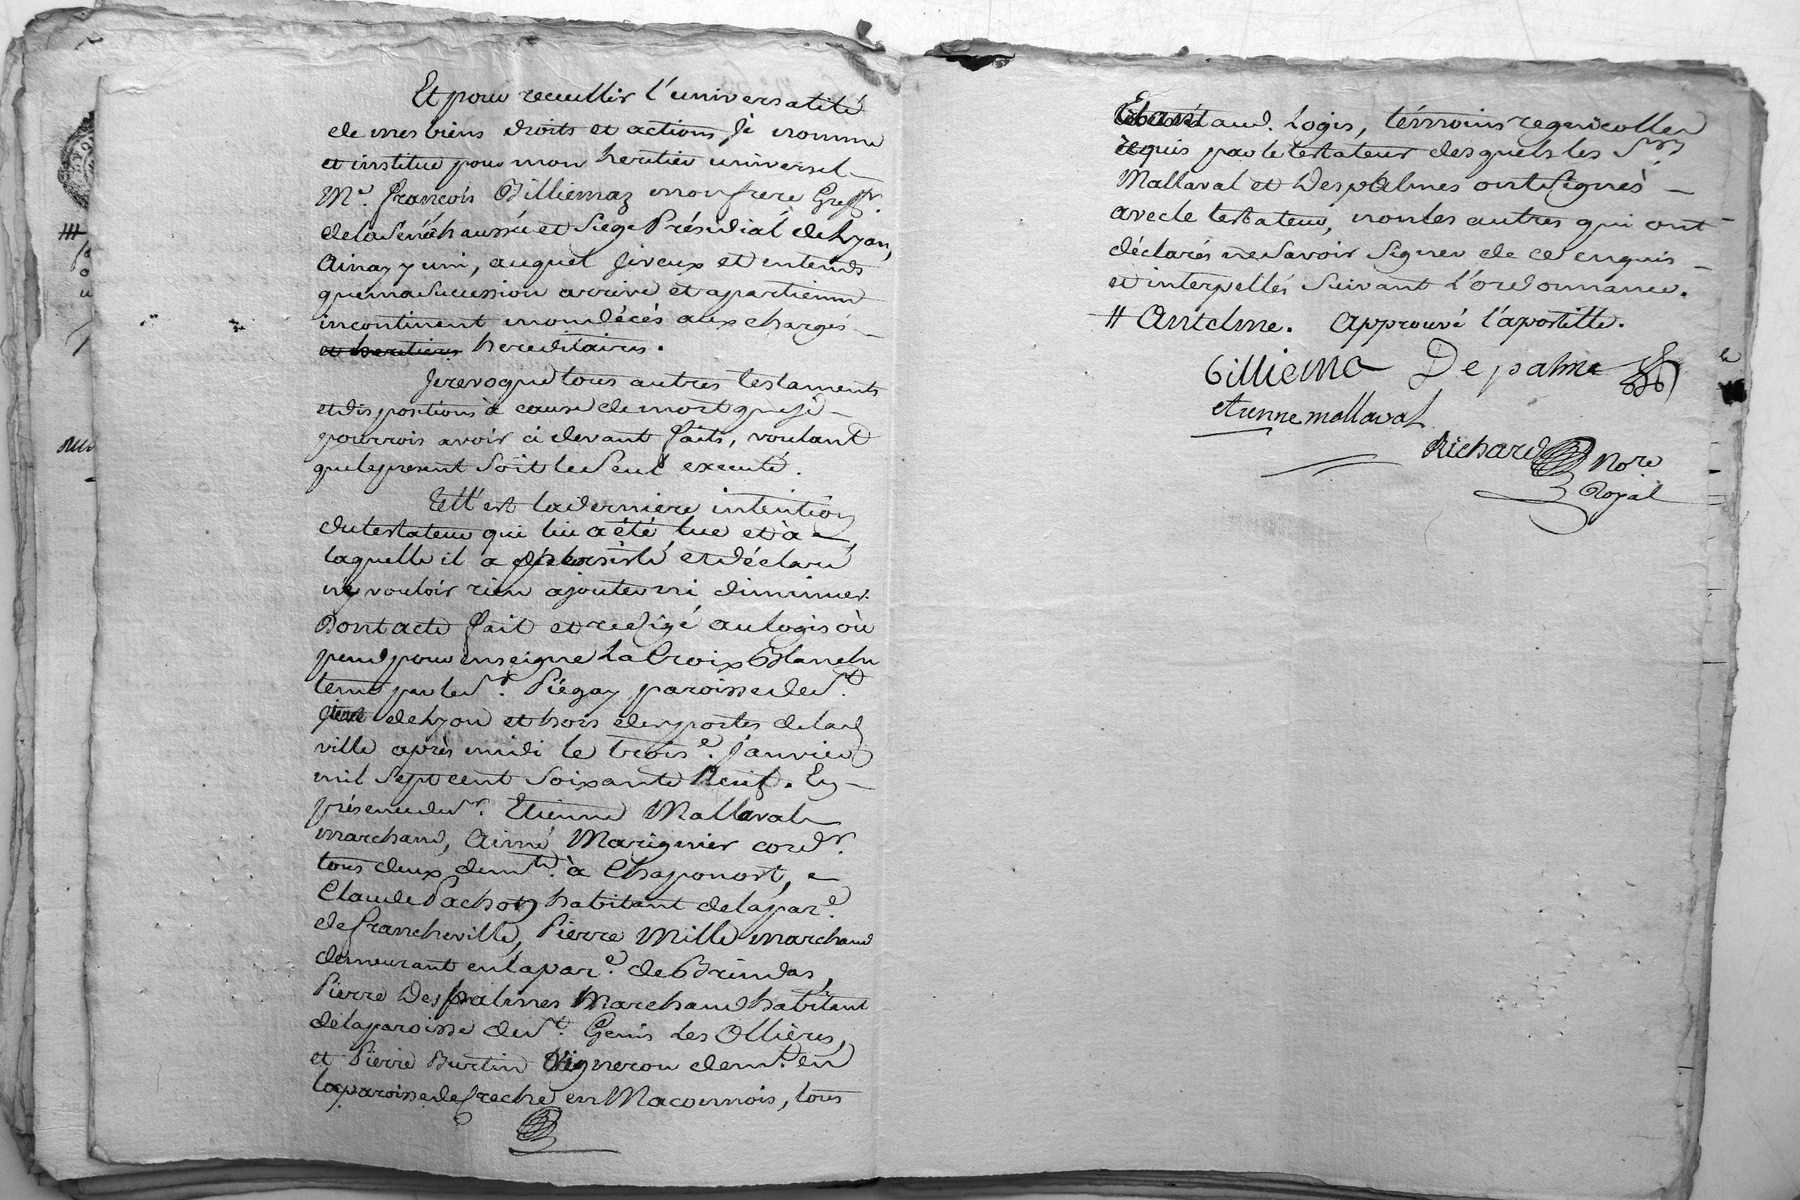 Et pour recuellir l'universalité
de mes biens droits et actions, je nomme
et institue pour mon heritier universel
Mr. françois Billiemaz mon frere Greffr.
de la Sénéchaussée et Siége Présidial de Lyon,
Ainay y uni, auquel je veux et entends
que ma Sucession arrive et apartienne
incontinent mon décés aux charges
et heritiers hereditaires.
Je revoque tous autres testaments
et dispositions à cause de mort que je
pourrois avoir ci devant faits, voulant
que le present Soit le Seul executé.
Tell' est la derniere intention
du testateur qui lui a été lue et à
laquelle il a persisté et déclaré
n'y vouloir rien ajouter ni diminuer.
Dont acte fait et redigé au logis où
pend pour enseigne La Croix Blanche
tenu par le Sr. Piégay paroisse de St.
de Lyon et hors des portes de lad.
ville après midi le troise. janvier
mil Sept cent Soixante Neuf. En
présence de Sr. Etienne Mallaval
marchand, Aimé Marignier cordr.
tous deux demts. à Chaponost,
Claude Pachot habitant de la pare.
de francheville, Pierre Mille marchand
demeurant en la pare. de Brindas,
Pierre Despalmes Marchand habitant
de la paroisse de St. Genis les Ollières,
et Pierre Burtin Vigneron demt. en
la paroisse de Creche en Maconnois, tous
Etant aud. Logis, témoins
requis par le testateur desquels les Srs
Mallaval et Despalmes ont Signés
avec le testateur, non les autres qui ont
déclarés ne Savoir Signer de ce enquis
et interpellés Suivant L'ordonnance.
# Antelme. Approuvé l'apostille.
Billiema Depalme
etienne mallaval
Richard Nore
Royal